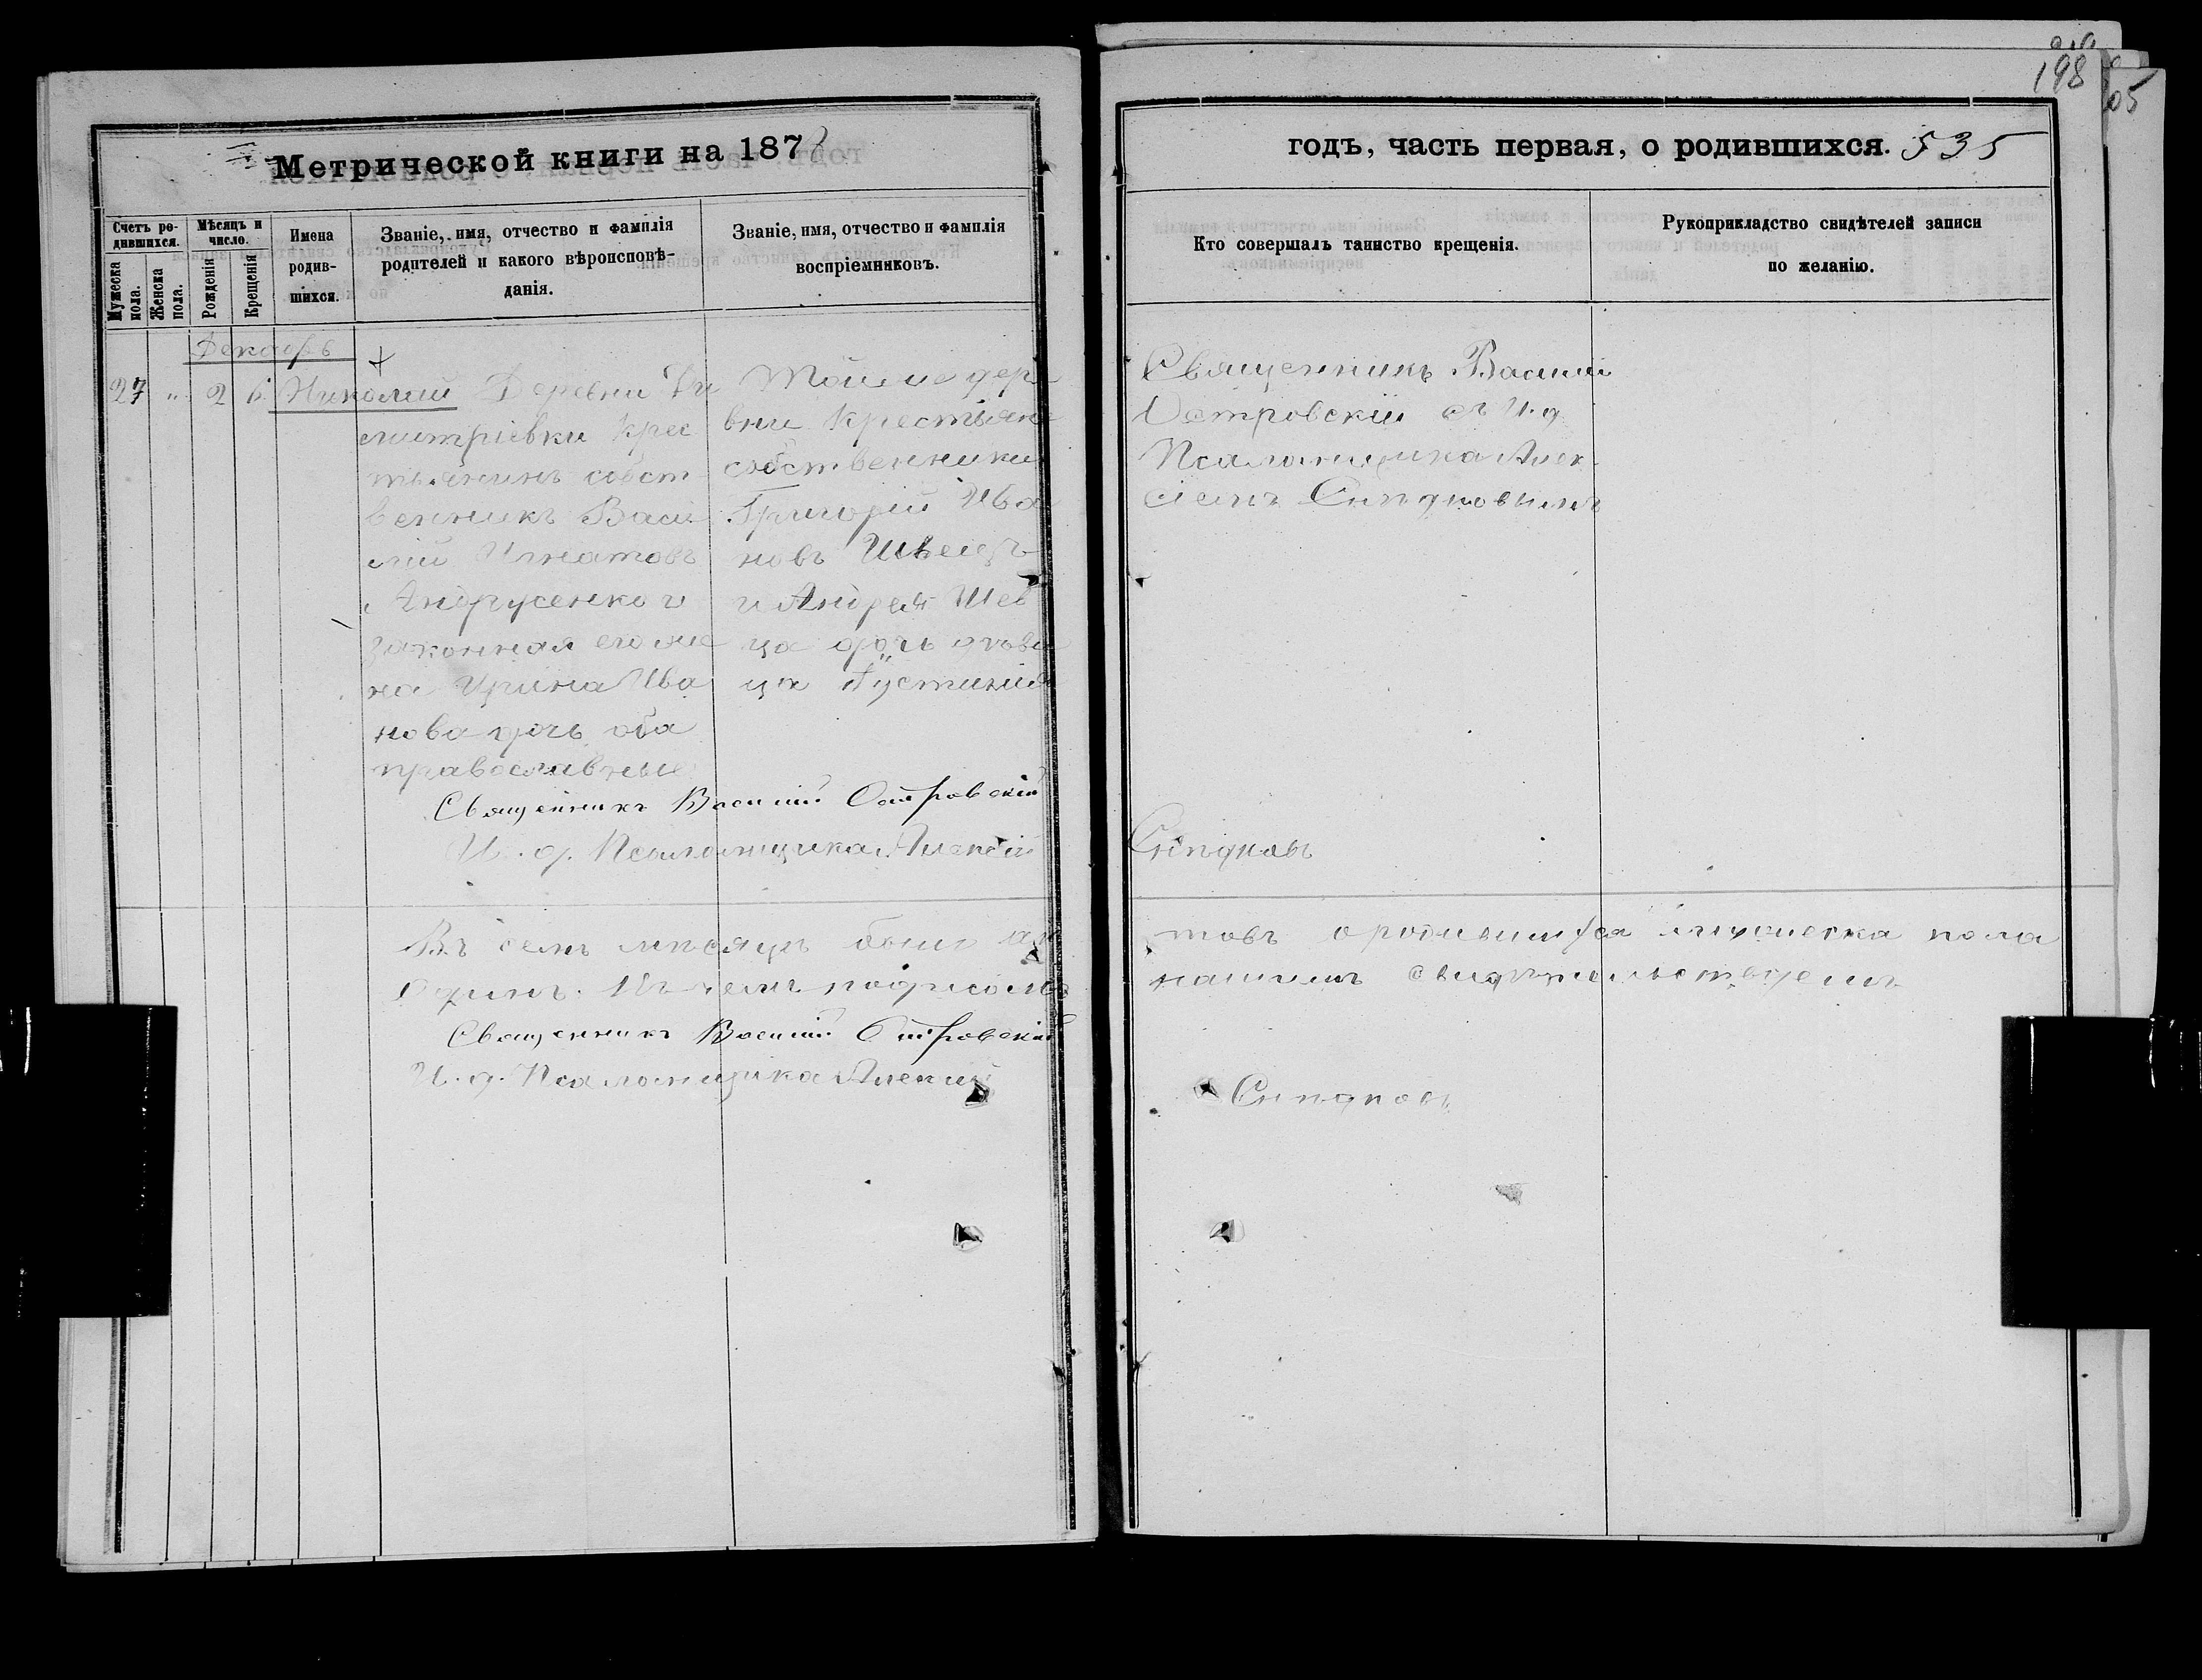 198
05
Метрической книги на 1873
годъ, часть первая, о родившихся. 535
Счетъ ро-
дившихся.
Мужеска
пола.
Женска
пола.
Мѣсяцъ и
число.
Рожденія
Крещенія
Имена
родив-
шихся.
Званіе, имя, отчество и фамилія
родителей и какого вѣроисповѣ-
данія.
Званіе, имя, отчество и фамилія
воспріемниковъ.
Кто совершалъ таинство крещенія.
Рукоприкладство свидѣтелей записи
по желанію.
Декабрь
27 " 2 6 Николай
Деревни Ди
митріевки крес
тьянинъ собст
венникъ Васи
лій Игнатовъ
Андрусенко и
законная его же
на Ирина Ива
нова дочь оба
православные
Той же дере
вни крестьяне
собственники
Григорій Ива
новъ Швецъ
и Андрея Шев
ца дочь дѣви
ца Іустинія
Священникъ Василій
Островскій съ И. д.
Псаломщика Алек
сіемъ
Священникъ Василій Островскій
И. д. Псаломщика Алексій
Въ семъ мѣсяцѣ было ак
товъ о родившихся мужеска пола
Одинъ. Въ чемъ подписомъ
нашимъ свидѣтельствуемъ
Священникъ Василій Островскій
И. д. Псаломщика Алексій